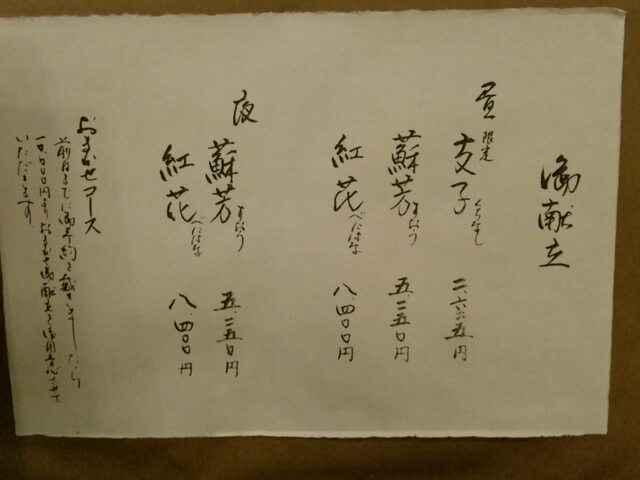 御献立
昼 限定 支子 くちなし 二、六二五円
蘇芳 すおう 五、二五〇円
紅花 べにばな 八、四〇〇円
夜 蘇芳 すおう 五、二五〇円
紅花 べにばな 八、四〇〇円
おまかせコース
前日までに御予約を戴きましたら
一〇、〇〇〇円よりおまかせ御献立を御用意させて
いただきます